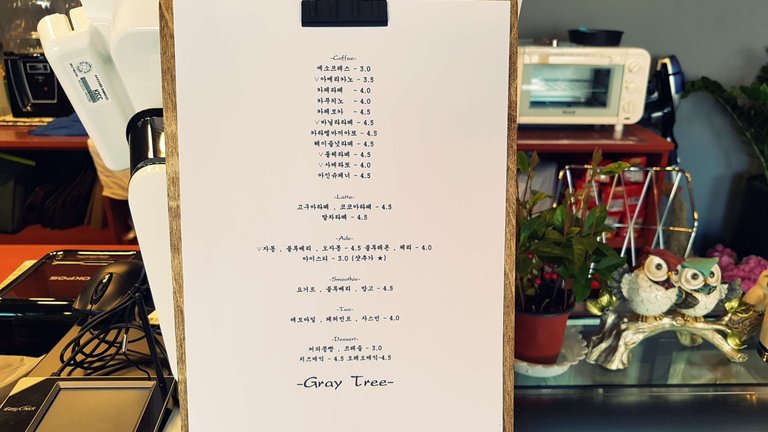 -Coffee-
에소프레스 - 3.0
∨아메리카노 - 3.5
카페라떼 - 4.0
카푸치노 - 4.0
카페모카 - 4.5
∨바닐라라떼 - 4.5
카라멜마끼아또 - 4.5
헤이즐넛라떼 - 4.5
∨돌체라떼 - 4.5
∨사케라또 - 4.0
아인슈페너 - 4.5
-Latte-
고구마라떼 , 코코아라떼 - 4.5
말차라떼 - 4.5
-Ade-
∨자몽 , 블루베리 , 오자몽 - 4.5 블루레몬 , 체리 - 4.0
아이스티 - 3.0 (샷추가 ★)
-Smoothie-
요거트 , 블루베리 , 망고 - 4.5
-Tea-
캐모마일 , 페퍼민트 , 자스민 - 4.0
-Dessert-
커피콩빵 , 크로플 - 3.0
치즈케익 - 4.5 오레오케익-4.5
-Gray Tree-
OKPOS
EasyCheck